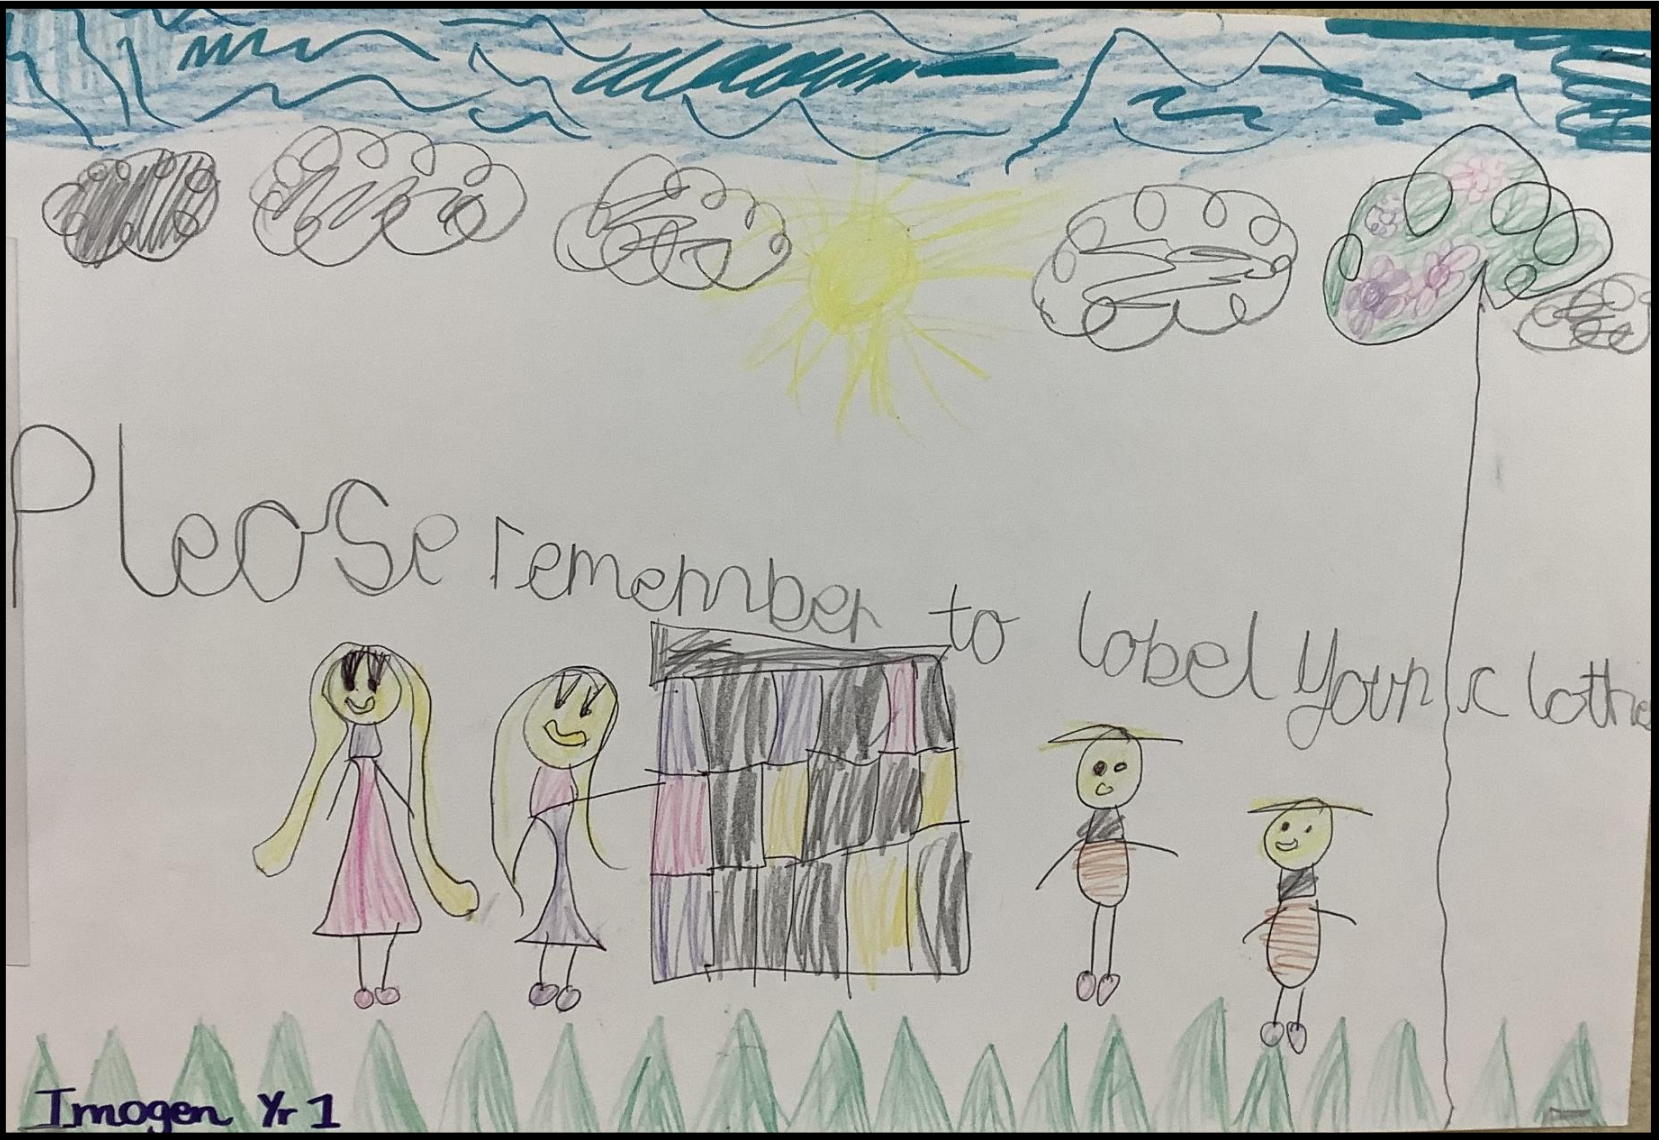 Please remember to label your clothe
Imogen Yr 1